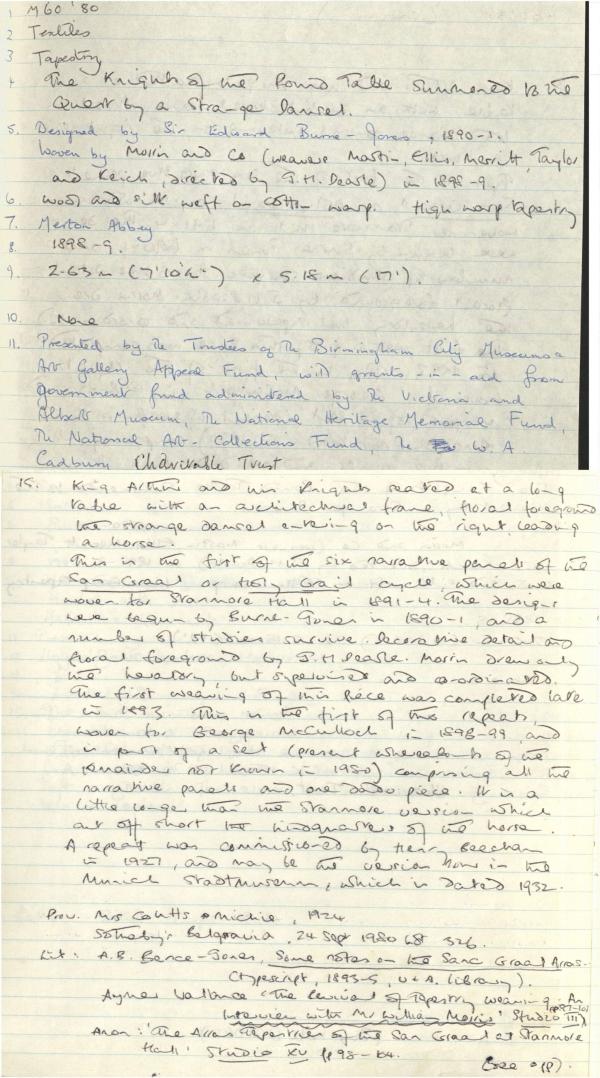 1 M60 '80
2 Textiles
3 Tapestry
4 The Knights of the Round Table Summoned to the
Quest by a Strange Damsel.
5. Designed by Sir Edward Burne-Jones, 1890-1.
Woven by Morris and Co (weavers Martin, Ellis, Merritt, Taylor
and Keich, directed by J.H. Dearle) in 1898-9.
6. wool and silk weft on cotton warp. High warp tapestry
7. Merton Abbey
8. 1898-9.
9. 2.63m (7'10½") x 5.18m (17').
10. None
11. Presented by the Trustees of the Birmingham City Museum &
Art Gallery Appeal Fund, with grants-in-aid from
government fund administered by the Victoria and
Albert Museum, The National Heritage Memorial Fund,
The National Art-Collections Fund, the W.A.
Cadbury Charitable Trust
15. King Arthur and his Knights seated at a long
table with an architectural frame, floral foreground
the strange damsel entering on the right, leading
a horse.
This is the first of the six narrative panels of the
San Graal or Holy Grail cycle, which were
woven for Stanmore Hall in 1891-4. The designs
were begun by Burne-Jones in 1890-1, and a
number of studies survive. Decorative detail and
floral foreground by J.H. Dearle. Morris drew only
the heraldry, but supervised and coordinated.
The first weaving of this piece was completed late
in 1893. This is the first of two repeats,
woven for George McCulloch in 1898-99, and
is part of a set (present whereabouts of the
remainder not known in 1980) comprising all the
narrative panels and one dado piece. It is a
little longer than the Stanmore version which
cut off short the hindquarters of the horse.
A repeat was commissioned by Henry Beecham
in 1927, and may be the version now in the
Munich Stadtmuseum, which is dated 1932.
Prov. Mrs Coutts Michie, 1924
Sotheby's Belgravia, 24 Sept 1980 lot 326.
Lit: A.B. Bence-Jones, Some notes on the Sanc Graal Arras
(typescript, 1893-5, V & A. Library).
Aymer Vallance 'The Revival of Tapestry weaving: An
interview with Mr William Morris' Studio III,
Anon: 'The Arras Tapestries of the San Graal at Stanmore
Hall' Studio XV pp 98-104.
(see opp).